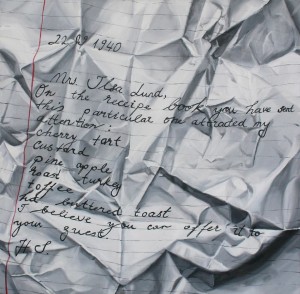 22 1940
Mrs. Ilsa Lund,
On the receipe book you have sent
this particular one attracted my
attention:
cherry tart
custard
pine apple
roast turkey
toffee
hot buttered toast
I believe you can offer it to
your guest.
H. S.